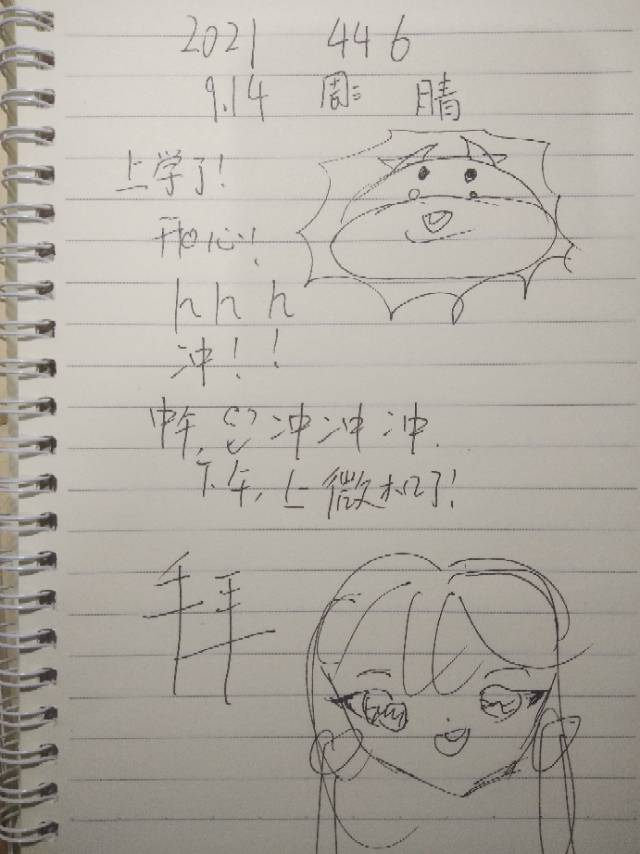 2021 446
9.14 周二 晴
上学了！
开心！
h h h
冲！！
中午，冲冲冲.
下午，上微机了！
拜